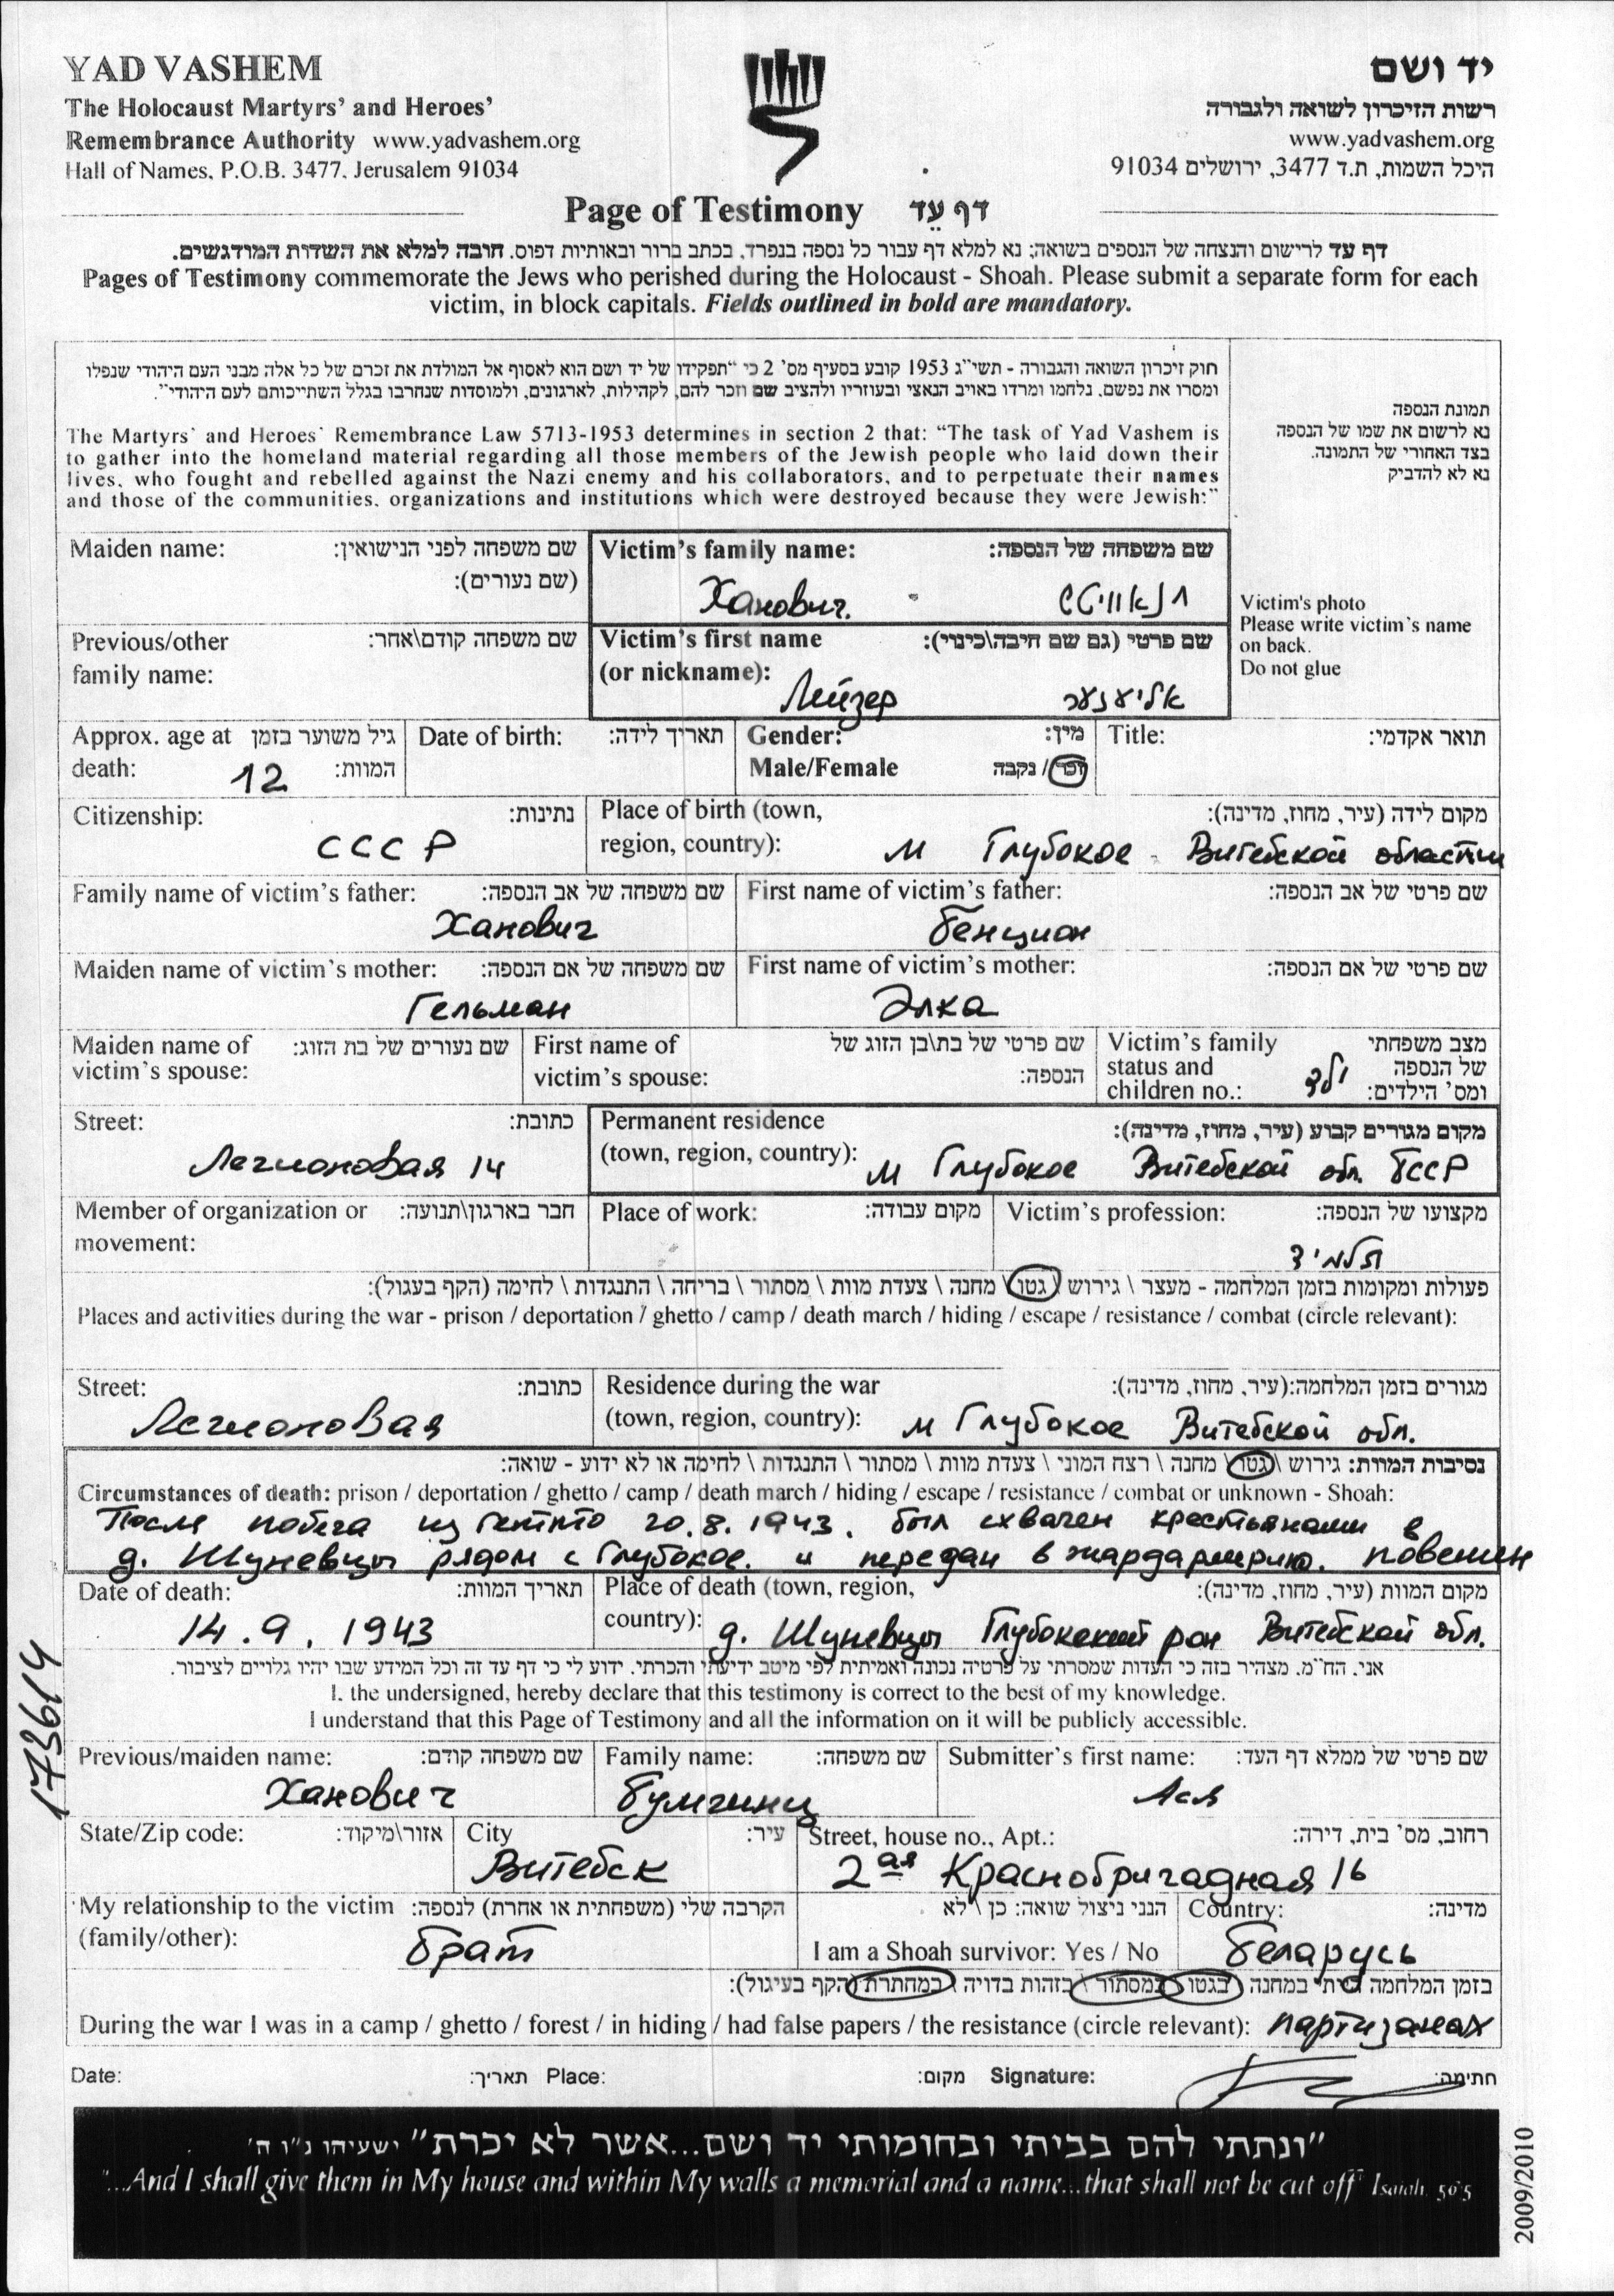 YAD VASHEM
יד ושם
The Holocaust Martyrs' and Heroes'
רשות הזיכרון לשואה ולגבורה
Remembrance Authority www.yadvashem.org
www.yadvashem.org
Hall of Names, P.O.B. 3477, Jerusalem 91034
היכל השמות, ת.ד 3477, ירושלים 91034
Page of Testimony דף עֵד
דף עד לרישום והנצחה של הנספים בשואה; נא למלא דף עבור כל נספה בנפרד, בכתב ברור ובאותיות דפוס. חובה למלא את השדות המודגשים.
Pages of Testimony commemorate the Jews who perished during the Holocaust - Shoah. Please submit a separate form for each
victim, in block capitals. Fields outlined in bold are mandatory.
חוק זיכרון השואה והגבורה - תשי"ג 1953 קובע בסעיף מס' 2 כי "תפקידו של יד ושם הוא לאסוף אל המולדת את זכרם של כל אלה מבני העם היהודי שנפלו
ומסרו את נפשם, נלחמו ומרדו באויב הנאצי ובעוזריו ולהציב שם וזכר להם, לקהילות, לארגונים, ולמוסדות שנחרבו בגלל השתייכותם לעם היהודי".
The Martyrs' and Heroes' Remembrance Law 5713-1953 determines in section 2 that: "The task of Yad Vashem is
to gather into the homeland material regarding all those members of the Jewish people who laid down their
lives, who fought and rebelled against the Nazi enemy and his collaborators, and to perpetuate their names
and those of the communities, organizations and institutions which were destroyed because they were Jewish:"
תמונת הנספה
נא לרשום את שמו של הנספה
בצד האחורי של התמונה.
נא לא להדביק
Victim's photo
Please write victim's name
on back.
Do not glue
Maiden name: שם משפחה לפני הנישואין:
(שם נעורים):
Victim's family name: שם משפחה של הנספה:
Ханович.
Previous/other שם משפחה קודם\אחר:
family name:
Victim's first name שם פרטי (גם שם חיבה\כינוי):
(or nickname):
Лейзер
Approx. age at גיל משוער בזמן
death: 12 המוות:
Date of birth: תאריך לידה:
Gender: מין:
Male/Female זכר / נקבה
Title: תואר אקדמי:
Citizenship: נתינות:
СССР
Place of birth (town, מקום לידה (עיר, מחוז, מדינה):
region, country): м Глубокое Витебской области
Family name of victim's father: שם משפחה של אב הנספה:
Ханович
First name of victim's father: שם פרטי של אב הנספה:
Бенцион
Maiden name of victim's mother: שם משפחה של אם הנספה:
Гельман
First name of victim's mother: שם פרטי של אם הנספה:
Элка
Maiden name of שם נעורים של בת הזוג:
victim's spouse:
First name of שם פרטי של בת\בן הזוג של
victim's spouse: הנספה:
Victim's family מצב משפחתי
status and של הנספה
children no.: ילד ומס' הילדים:
Street: כתובת:
Легионовая 14
Permanent residence מקום מגורים קבוע (עיר, מחוז, מדינה):
(town, region, country): м Глубокое Витебской обл. БССР
Member of organization or חבר בארגון\תנועה:
movement:
Place of work: מקום עבודה:
Victim's profession: מקצועו של הנספה:
תלמיד
פעולות ומקומות בזמן המלחמה - מעצר \ גירוש \ גטו \ מחנה \ צעדת מוות \ מסתור \ בריחה \ התנגדות \ לחימה (הקף בעגול):
Places and activities during the war - prison / deportation / ghetto / camp / death march / hiding / escape / resistance / combat (circle relevant):
Street: כתובת:
Легионовая
Residence during the war מגורים בזמן המלחמה:(עיר, מחוז, מדינה):
(town, region, country): м Глубокое Витебской обл.
נסיבות המוות: גירוש \ גטו \ מחנה \ רצח המוני \ צעדת מוות \ מסתור \ התנגדות \ לחימה או לא ידוע - שואה:
Circumstances of death: prison / deportation / ghetto / camp / death march / hiding / escape / resistance / combat or unknown - Shoah:
После побега из гетто 20.8.1943. был схвачен крестьянами в
д. Шуневцы рядом с Глубокое. и передан в повешен
Date of death: תאריך המוות:
14.9.1943
Place of death (town, region, מקום המוות (עיר, מחוז, מדינה):
country): д. Шуневцы рон Витебской обл.
אני, הח"מ, מצהיר בזה כי העדות שמסרתי על פרטיה נכונה ואמיתית לפי מיטב ידיעתי והכרתי. ידוע לי כי דף עד זה וכל המידע שבו יהיו גלויים לציבור.
I, the undersigned, hereby declare that this testimony is correct to the best of my knowledge.
I understand that this Page of Testimony and all the information on it will be publicly accessible.
Previous/maiden name: שם משפחה קודם:
Ханович
Family name: שם משפחה:
Submitter's first name: שם פרטי של ממלא דף העד:
Ася
State/Zip code: אזור\מיקוד:
City עיר:
Витебск
Street, house no., Apt.: רחוב, מס' בית, דירה:
2ая Краснобригадная 16
My relationship to the victim הקרבה שלי (משפחתית או אחרת) לנספה:
(family/other): брат
הנני ניצול שואה: כן \ לא
I am a Shoah survivor: Yes / No
Country: מדינה:
Беларусь
בזמן המלחמה הייתי במחנה \ בגטו \ במסתור \ בזהות בדויה \ במחתרת (הקף בעיגול):
During the war I was in a camp / ghetto / forest / in hiding / had false papers / the resistance (circle relevant): партизанах
Date: תאריך: Place: מקום: Signature: חתימה:
"ונתתי להם בביתי ובחומותי יד ושם...אשר לא יכרת" ישעיהו נ"ו ה'
"...And I shall give them in My house and within My walls a memorial and a name...that shall not be cut off" Isaiah, 56:5
173614
2009/2010